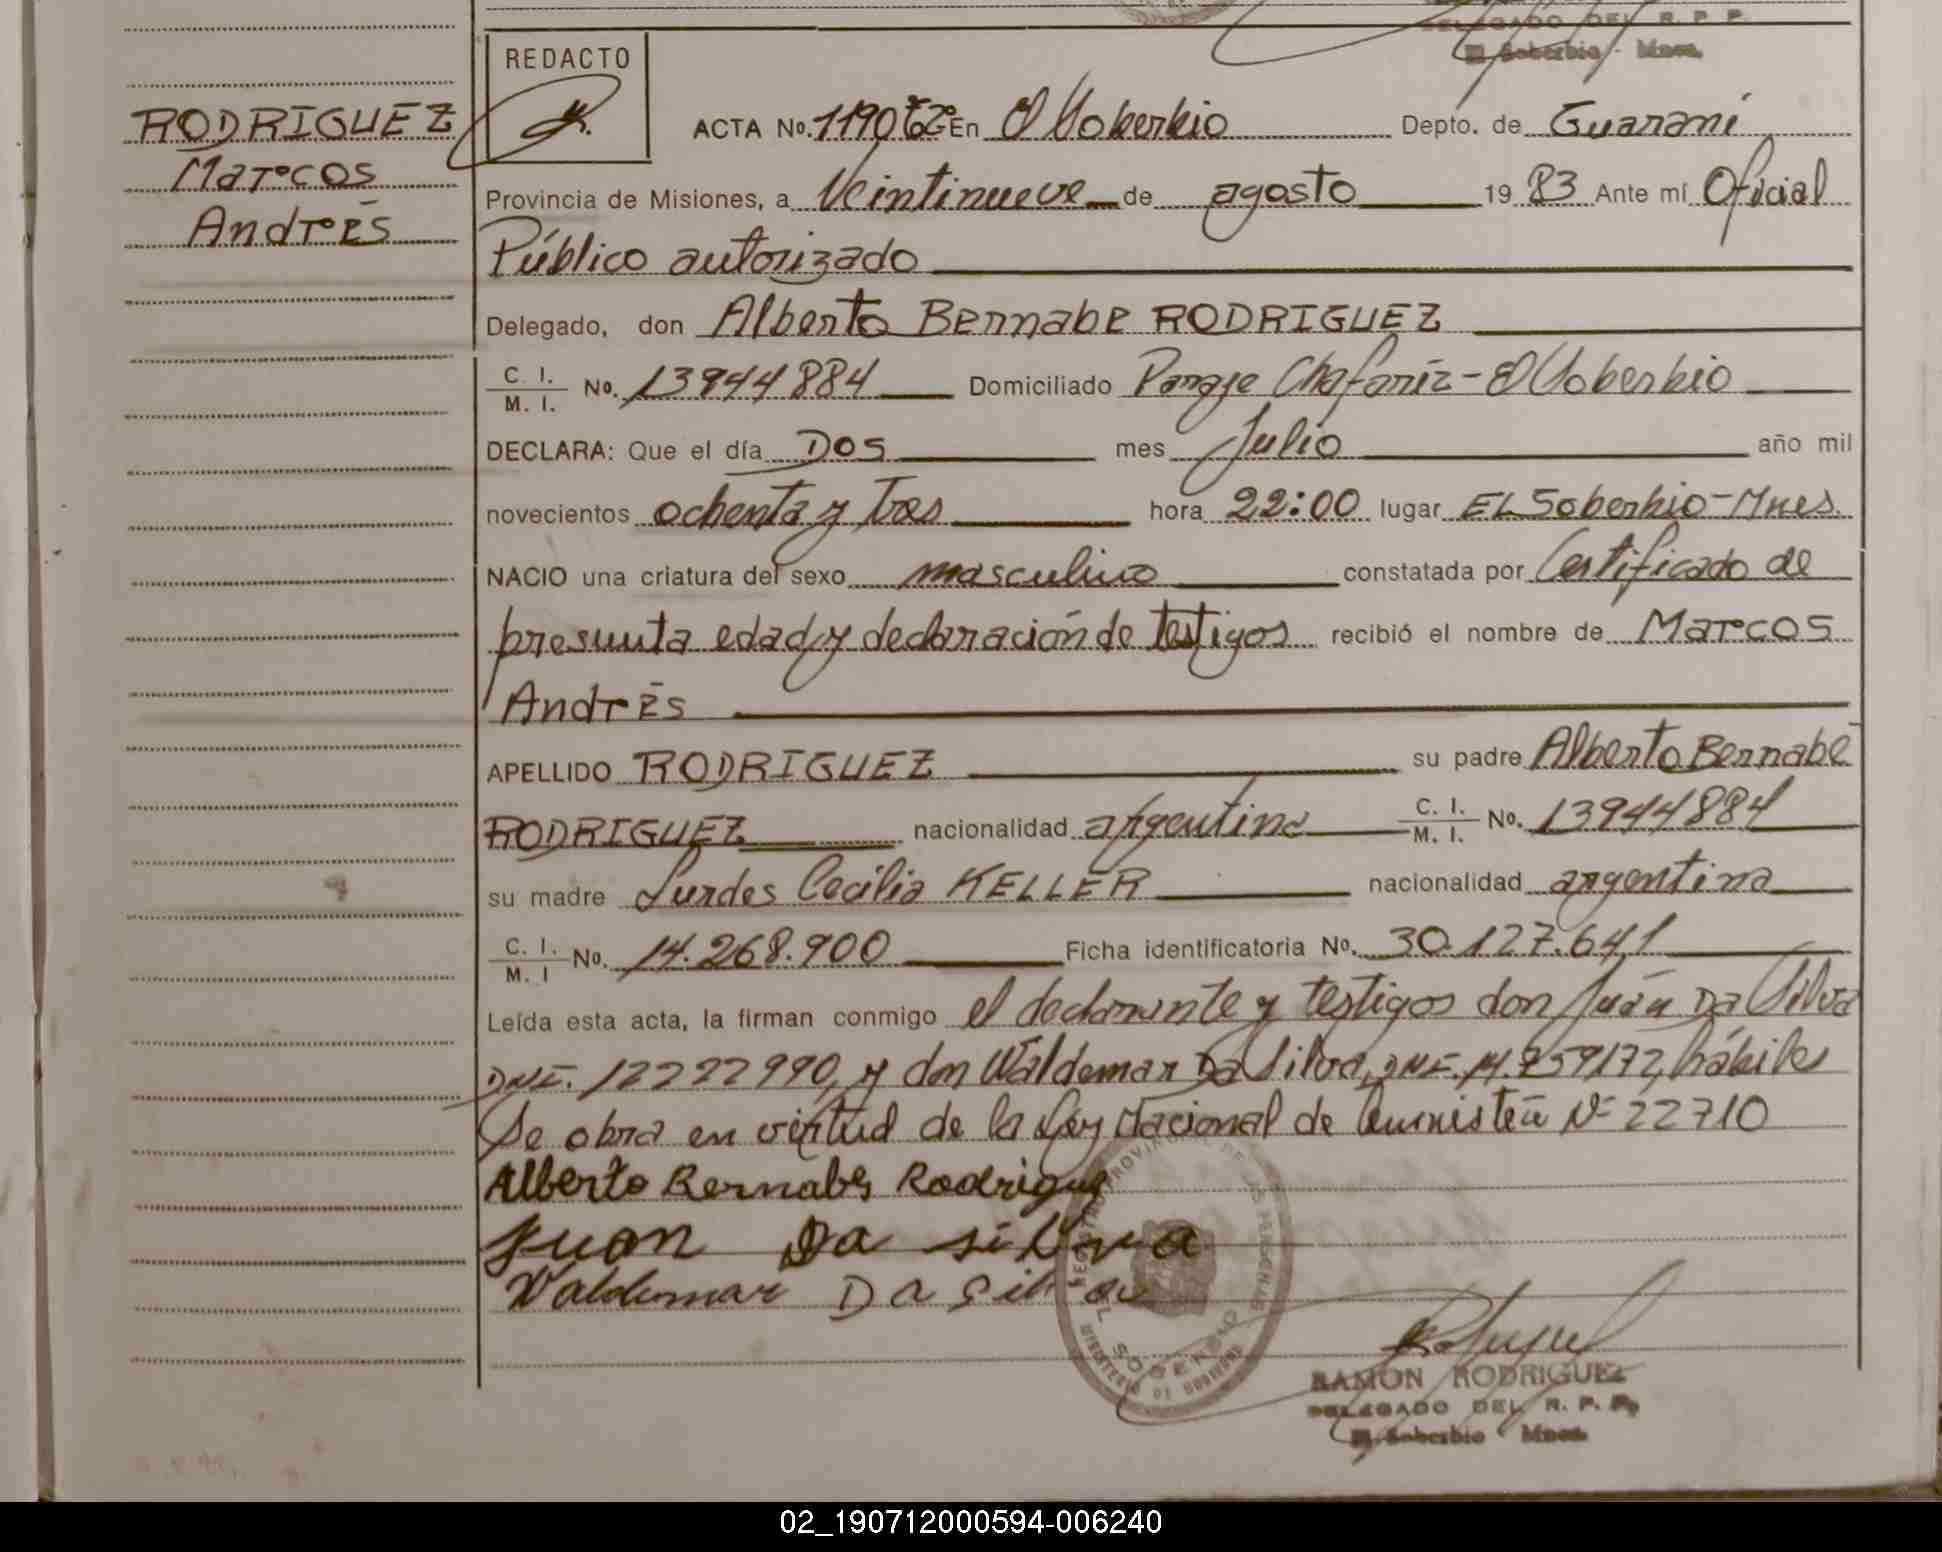 DELEGADO DEL R. P. P.
El Soberbio - Mnes.
REDACTO
RODRIGUEZ
Marcos
Andrés
ACTA No. 1190 Tº 2º En El Soberbio Depto. de Guaraní
Provincia de Misiones, a Veintinueve de agosto 19 83 Ante mí Oficial
Público autorizado
Delegado, don Alberto Bernabe RODRIGUEZ
C. I. / M. I. No. 13944884 Domiciliado Paraje Chafariz - El Soberbio
DECLARA: Que el día DOS mes Julio año mil
novecientos ochenta y tres hora 22:00 lugar EL Soberbio - Mnes.
NACIO una criatura del sexo masculino constatada por Certificado de
presunta edad y declaración de testigos recibió el nombre de Marcos
Andrés
APELLIDO RODRIGUEZ su padre Alberto Bernabé
RODRIGUEZ nacionalidad argentina C. I. / M. I. No. 13944884
su madre Lurdes Cecilia KELLER nacionalidad argentina
C. I. / M. I No. 14.268.900 Ficha identificatoria No. 30.127.641
Leída esta acta, la firman conmigo el declarante y testigos don Juan Da Silva
DNI. 12222990, y don Waldemar Da Silva, DNI. 14.759172, hábiles
Se obra en virtud de la Ley Nacional de Amnistía Nº 22710
Alberto Bernabe Rodriguez
Juan Da silva
Waldemar Da Silva
REGISTRO PROVINCIAL DE LAS PERSONAS
EL SOBERBIO
MINISTERIO DE GOBIERNO
RAMON RODRIGUEZ
DELEGADO DEL R. P. P.
El Soberbio - Mnes.
02_190712000594-006240